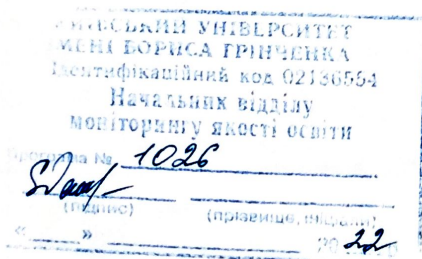 КИЇВСЬКИЙ УНІВЕРСИТЕТ
ІМЕНІ БОРИСА ГРІНЧЕНКА
Ідентифікаційний код 02136554
Начальник відділу
моніторингу якості освіти
Програма № 1026
(підпис) (прізвище, ініціали)
«   »   20 22